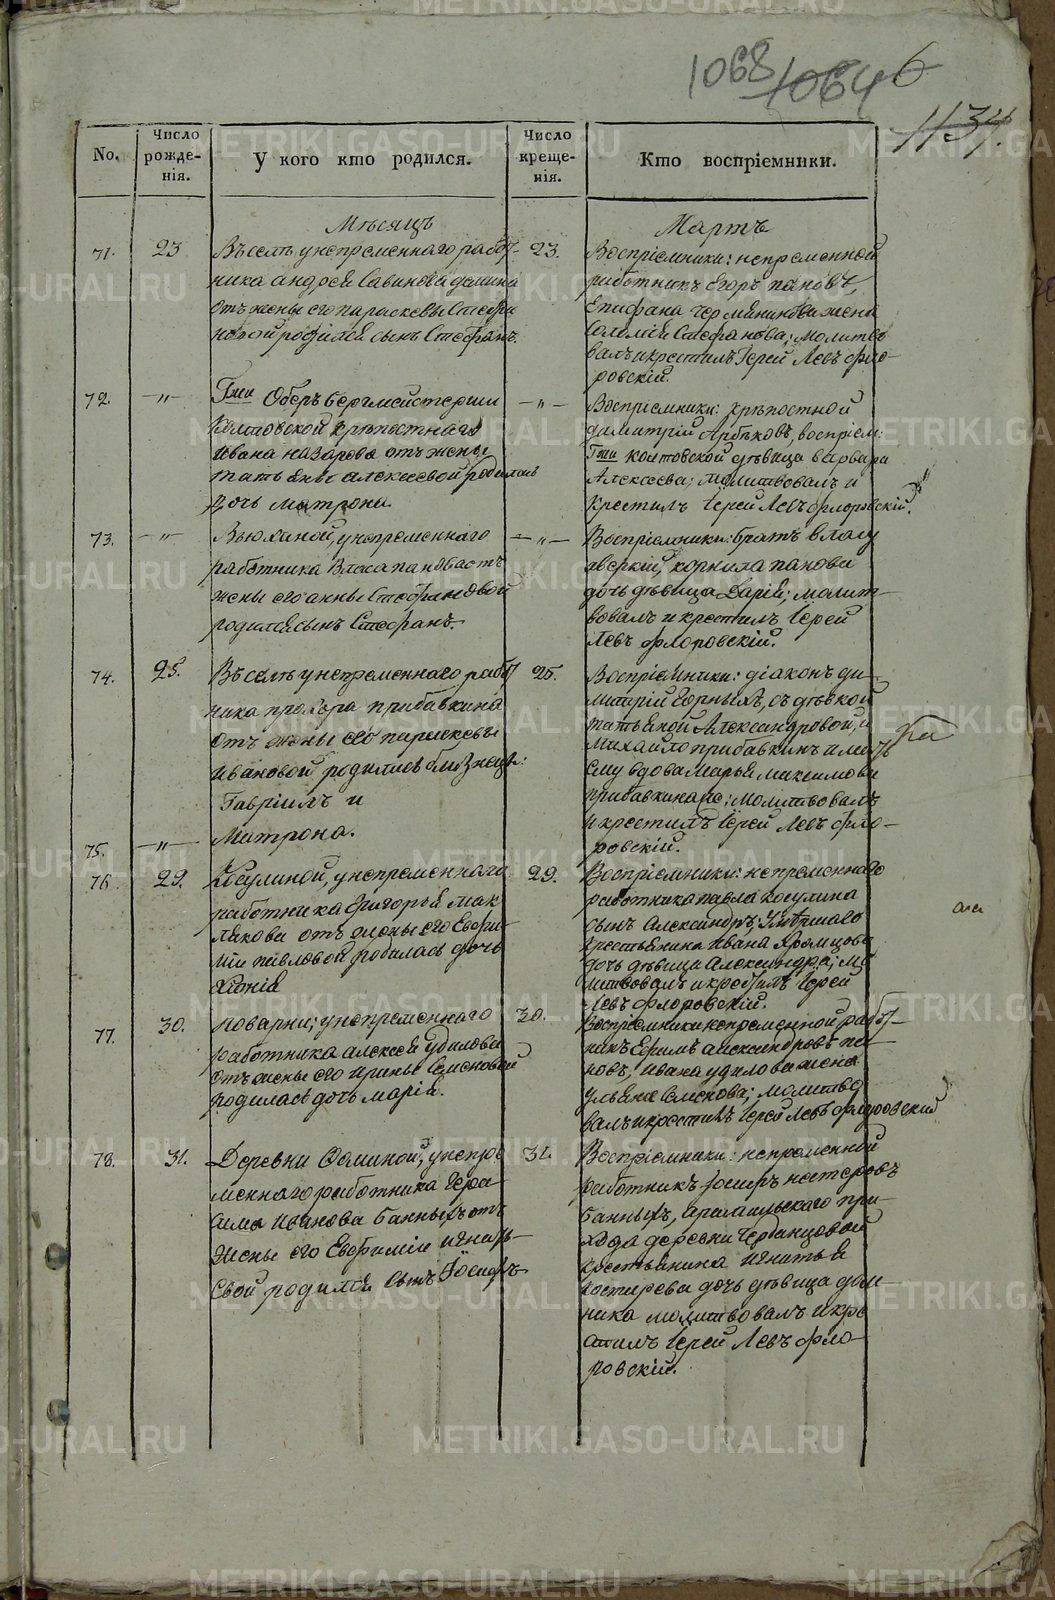 1068 1064 б
1134.
No.
Число рожде- нія.
У кого кто родился.
Число креще- нія.
Кто воспріемники.
Мѣсяцъ
Мартъ
71. 23
Въ селѣ у непременнаго работ-
ника андрея Савинова
отъ жены его параскевы Стефа
новой родился сынъ Стефанъ.
23.
Воспріемники: непременной
работникъ Егоръ пановъ,
Епифана жена
Стефанова; молитво
валъ и крестилъ Іерей Левъ фло-
ровскій.
72. —"—
Гжи Оберъ бергмейстерши
Колтовской крѣпостнаго
Ивана назарова отъ жены
татьяны алексеевой родилась
дочь матрона.
—"—
Воспріемники: крѣпостной
димитрій воспріем:
Гжи колтовской дѣвица варвара
Алексеева; молитвовалъ и
крестилъ Іерей Левъ флоровскій.
73. —"—
Вьюхиной, у непременнаго
работника Власа панова отъ
жены его анны Стефановой
родился сынъ Стефанъ.
—"—
Воспріемники: братъ власу
аверкій, корнила панова
дочь дѣвица Дарія; молит-
вовалъ и крестилъ Іерей
Левъ Флоровскій.
74. 25.
Въ селѣ у непременнаго работ
ника прохора прибавкина
отъ жены его параскевы
ивановой родились близнецы:
Гавріилъ и
Матрона.
25.
Воспріемники: діаконъ ди-
митрій Горныхъ, съ дѣвкой
татьяной Александровой, и
Михайло прибавкинъ и мать
ему вдова Марья максимова
прибавкина же; молитвовалъ
и крестилъ Іерей Левъ фло-
ровскій.
75. —"—
76. 29.
Косулиной, у непременнаго
работника григорья мак
лакова отъ жены его Евфи-
міи павловой родилась дочь
Хіонія
29.
Воспріемники: непременнаго
работника павла косулина
сынъ Александръ;
крестьянина ивана
дочь дѣвица Александра; мо
литвовалъ и крестилъ Іерей
Левъ Флоровскій.
77. 30.
поварни; у непременнаго
работника алексея удилова
отъ жены его ирины Семеновой
родилась дочь марія.
30.
Воспріемники непременной работ-
никъ Ефимъ александровъ па-
новъ, ивана удилова жена
ульяна Семенова; молитво
валъ и крестилъ Іерей Левъ флоровский
78. 31.
Деревни Фоминой, у непре
меннаго работника Гера-
сима иванова банныхъ отъ
жены его Евфиміи игнать-
евой родился сынъ Іосифъ
31.
Воспріемники: непременной
работникъ нестеровъ
банныхъ, арамильскаго при-
хода деревни
крестьянина игнатья
костарева дочь дѣвица дом-
ника молитвовалъ и кре
стилъ Іерей Левъ фло-
ровскій.
METRIKI.GASO-URAL.RU